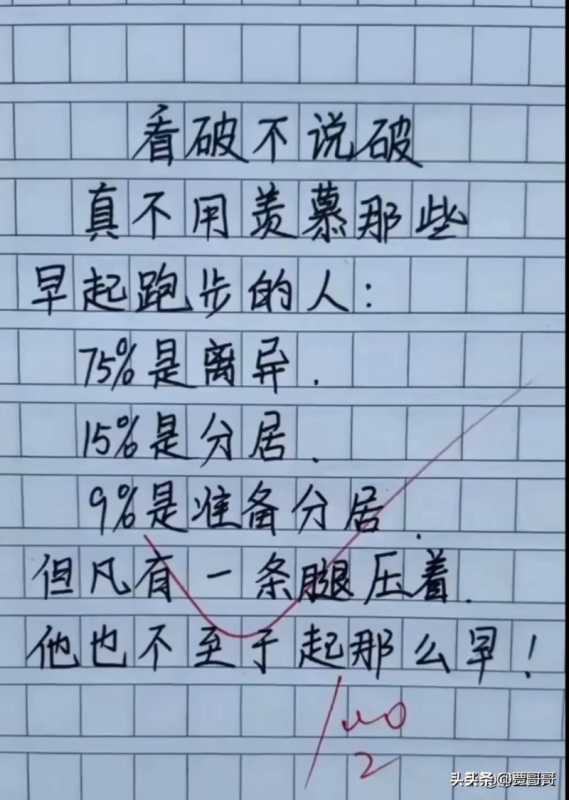 看破不说破
真不用羡慕那些
早起跑步的人：
75%是离异.
15%是分居.
9%是准备分居.
但凡有一条腿压着.
他也不至于起那么早！
100
2
头条@贾哥哥